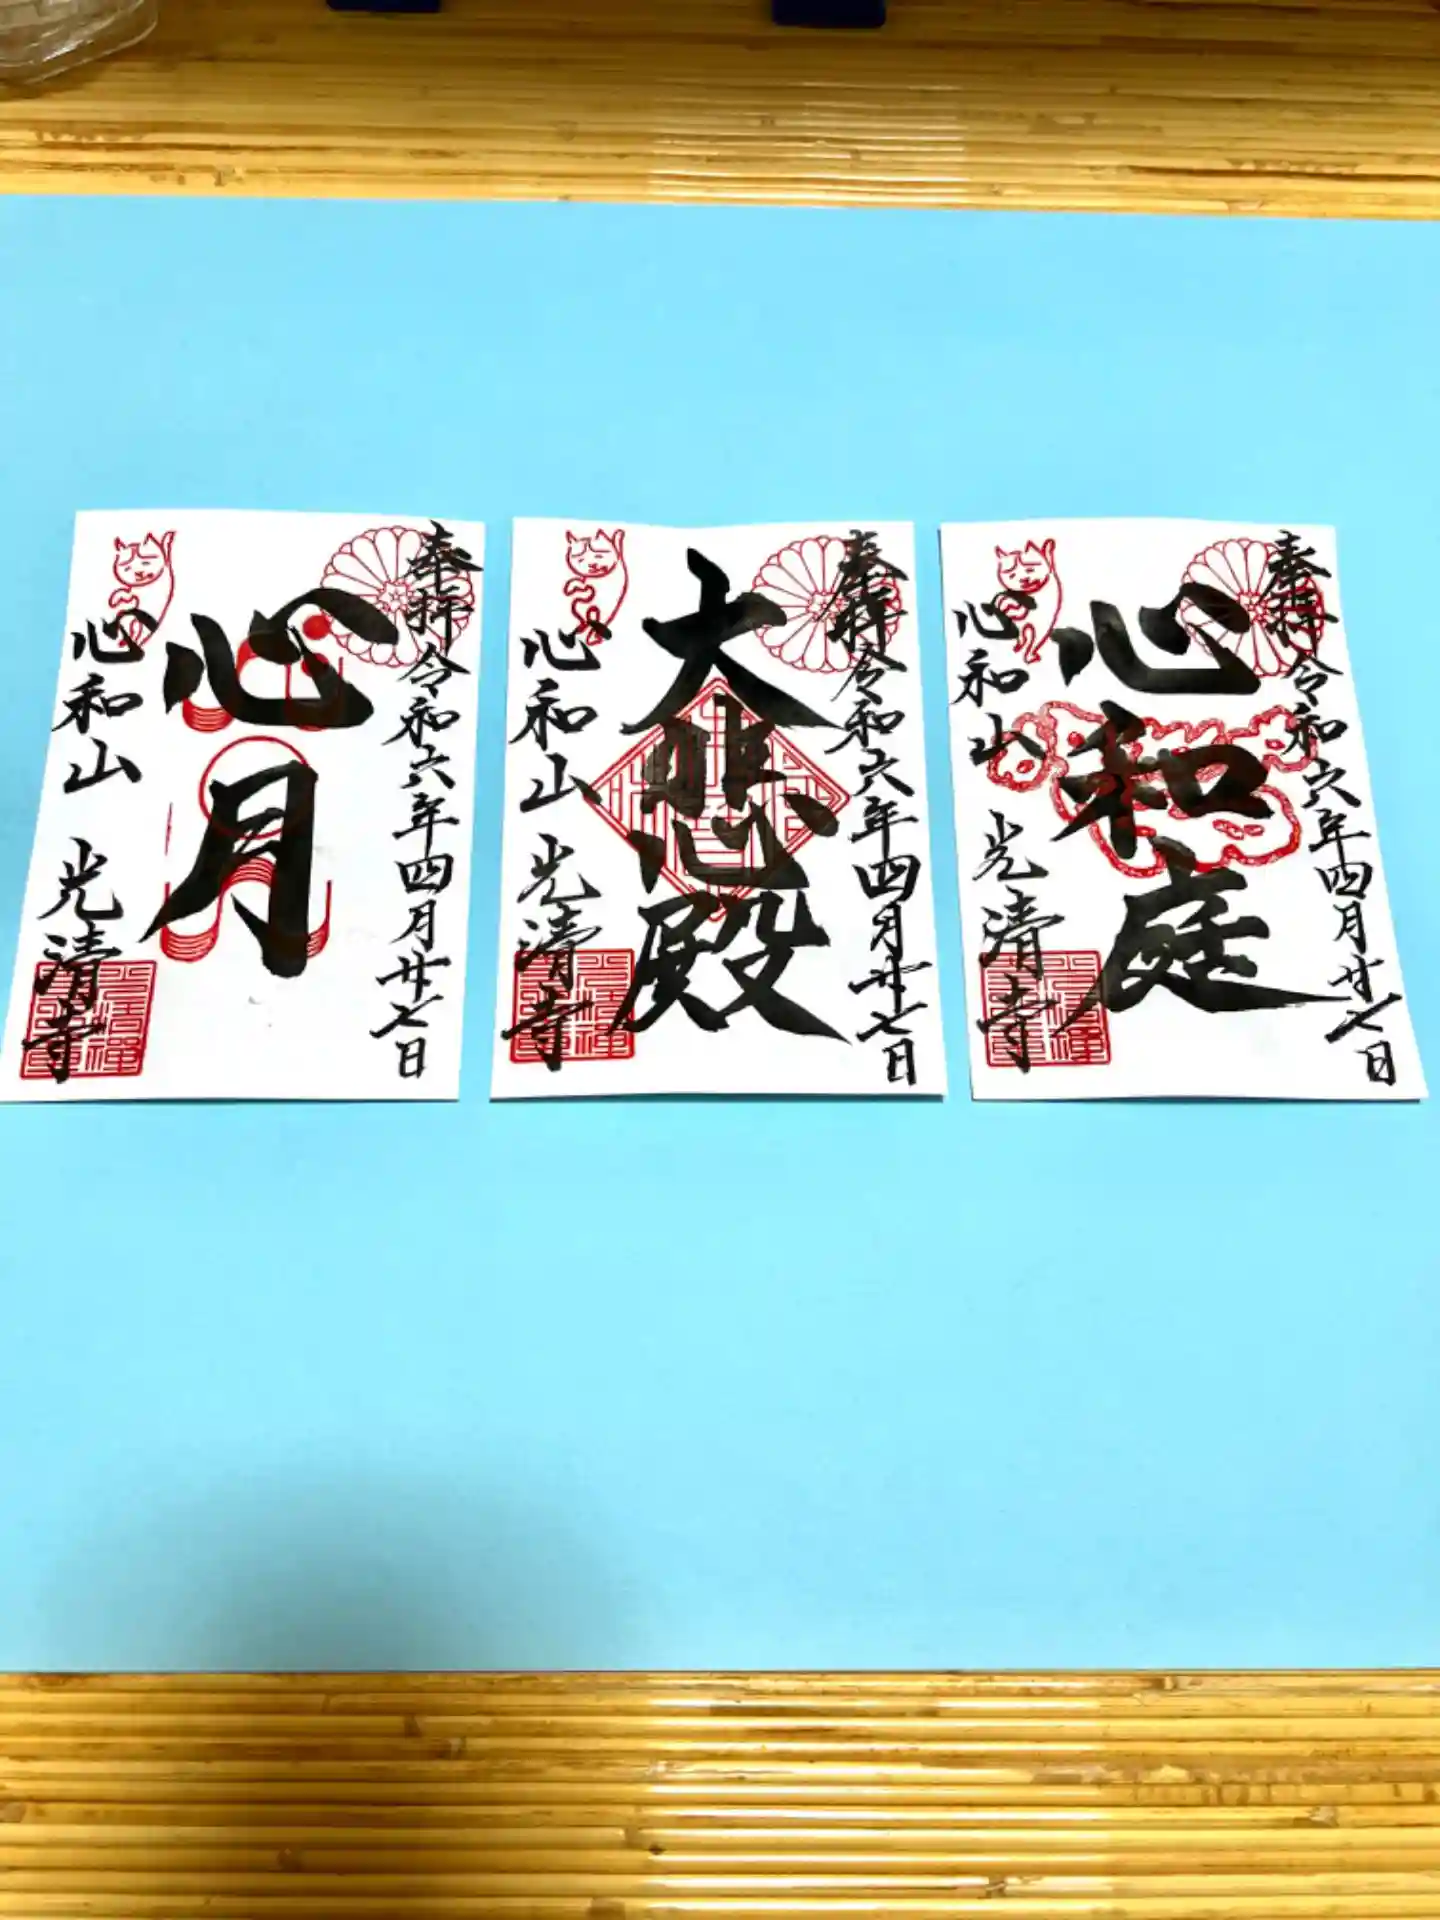 奉拝 令和六年四月廿七日
心月
心和山 光清寺
奉拝 令和六年四月廿七日
大悲殿
心和山 光清寺
奉拝 令和六年四月廿七日
心和庭
心和山 光清寺